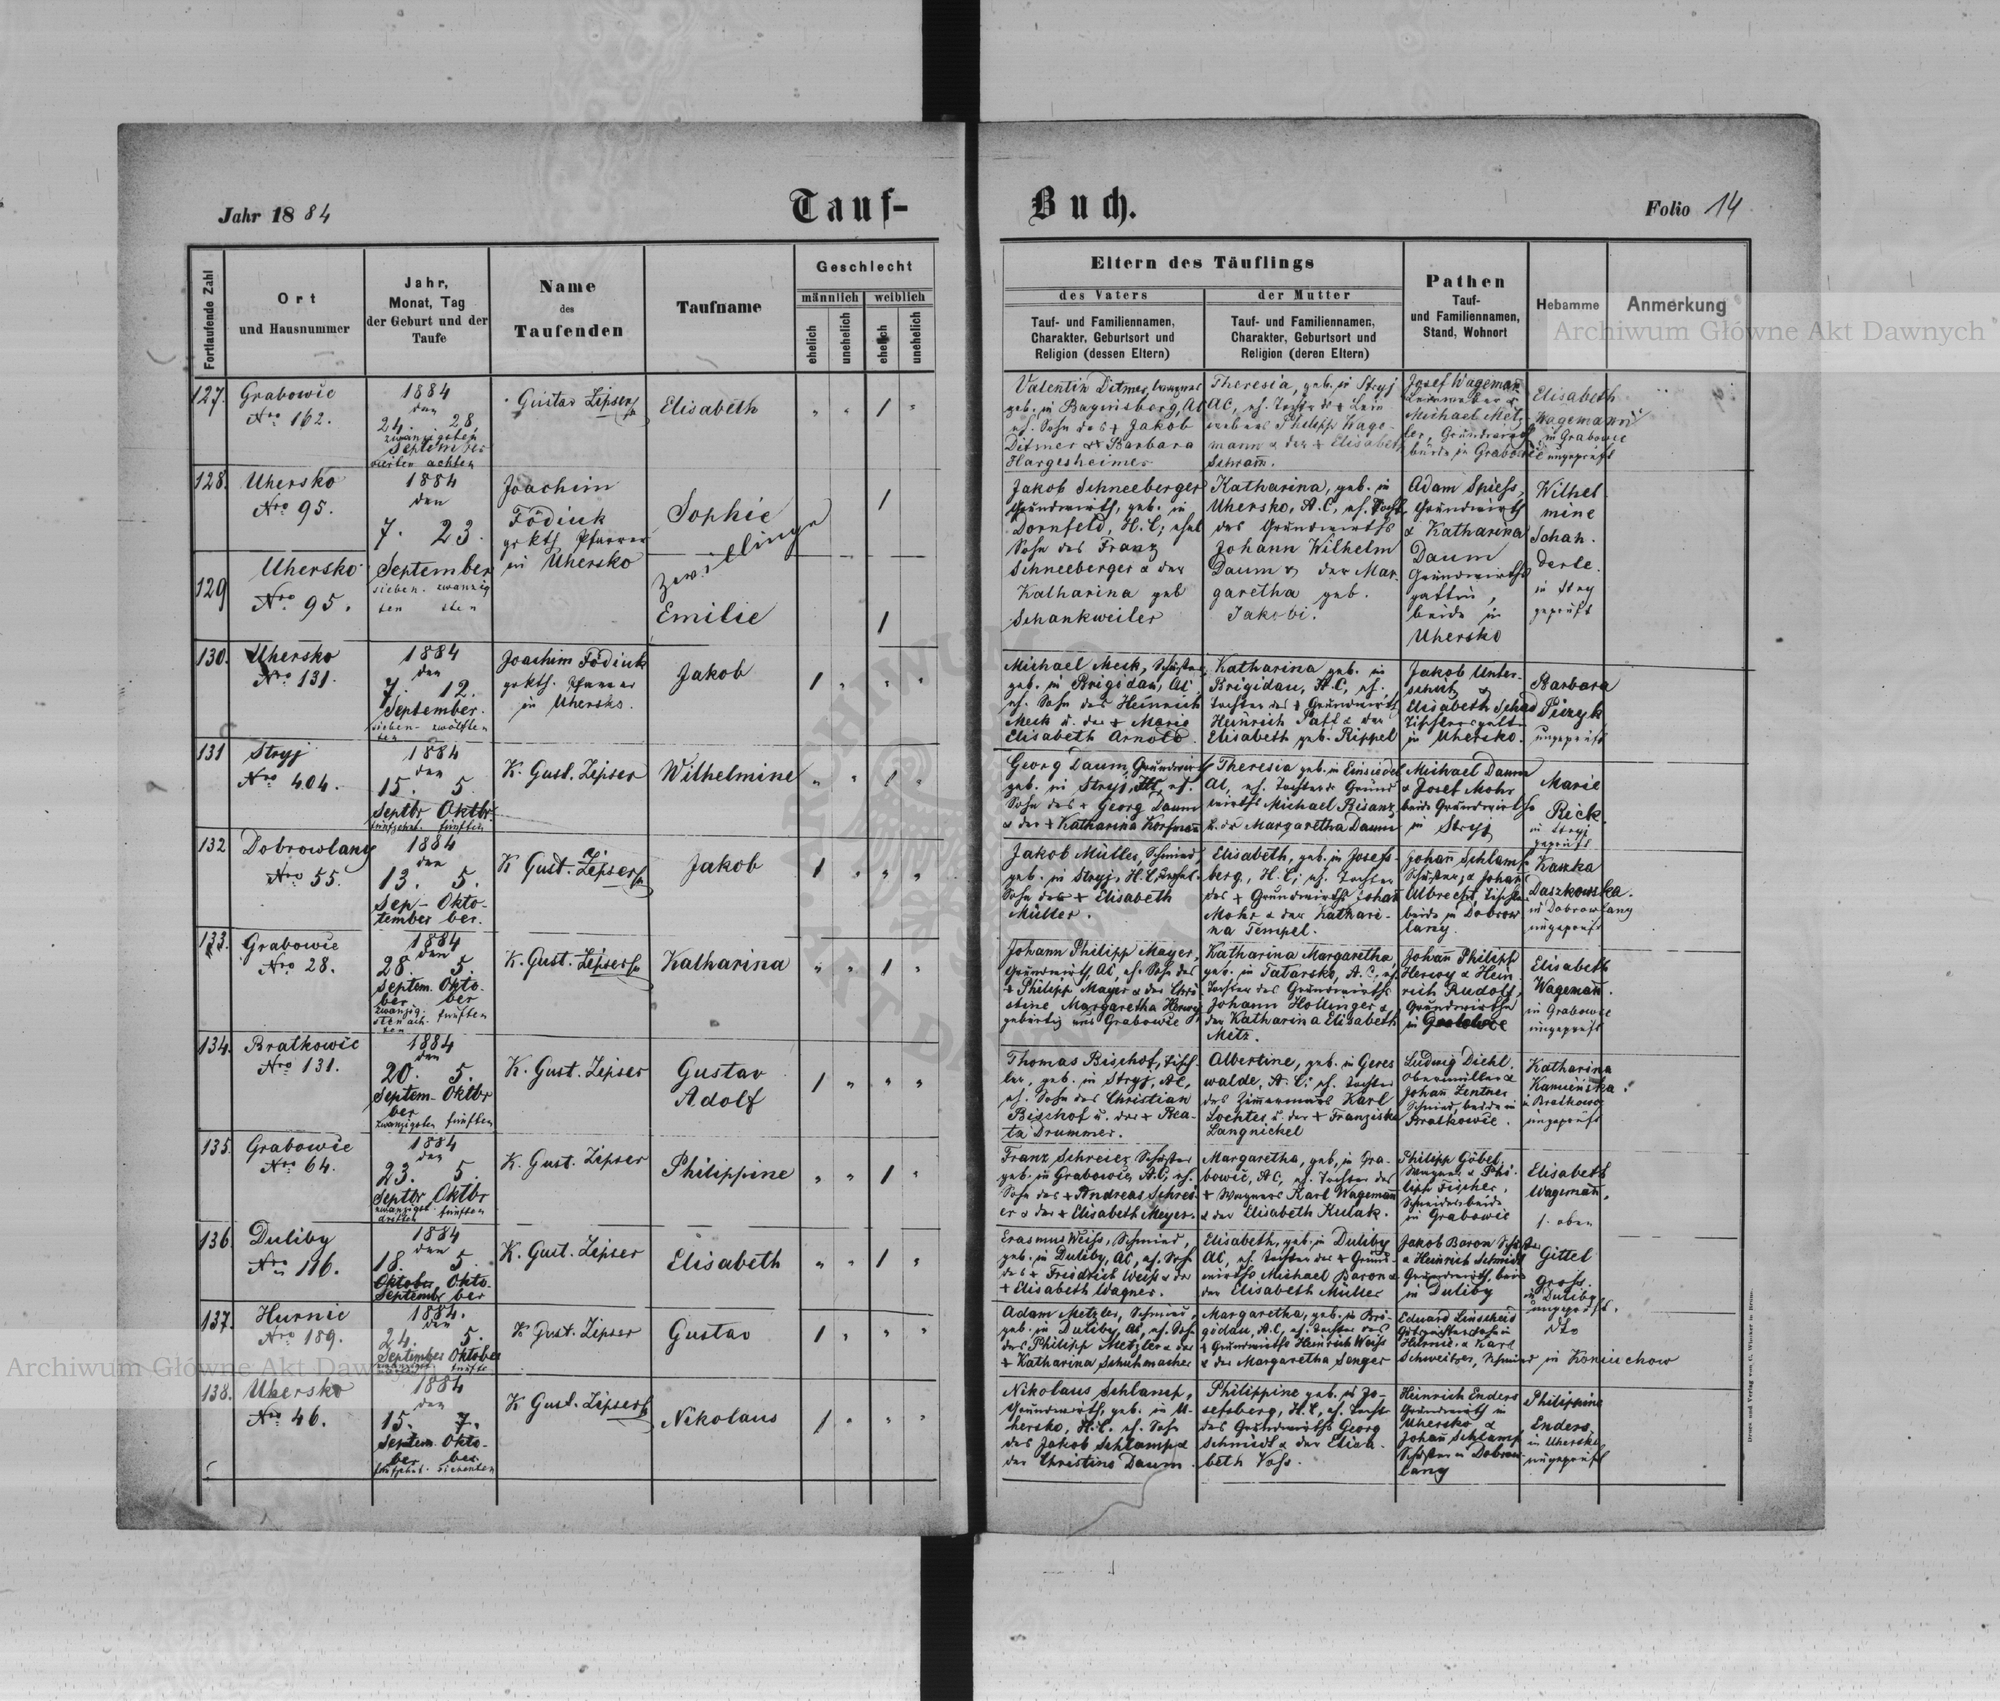 Jahr 1884
Tauf-
Buch.
Folio 14
Fortlaufende Zahl
Ort
und Hausnummer
Jahr,
Monat, Tag
der Geburt und der
Taufe
Name
des
Taufenden
Taufname
Geschlecht
männlich weiblich
ehelich unehelich ehelich unehelich
Eltern des Täuflings
des Vaters
Tauf- und Familiennamen,
Charakter, Geburtsort und
Religion (dessen Eltern)
der Mutter
Tauf- und Familiennamen,
Charakter, Geburtsort und
Religion (deren Eltern)
Pathen
Tauf-
und Familiennamen,
Stand, Wohnort
Hebamme
Anmerkung
Archiwum Główne Akt Dawnych
127.
Grabowic
Nro 162.
1884
den
24. 28.
zwanzigsten
September
vierten achten
Gustav Zipser
Elisabeth
Valentin Ditmer
geb. in
eh. Sohn des + Jakob
Ditmer & Barbara
Hargesheimer
Theresia, geb. in Stryj
AC, eh. Tochter des + Lein
webers Philipp Wage-
mann & der + Elisabeth
Schram̄.
Josef Wageman̄
Leinweber &
Michael Metz-
ler, Grundwirth
beide in Grabowic
Elisabeth
Wageman̄
in Grabowic
ungeprüft
128.
Uhersko
Nro 95.
1884
den
7. 23.
Joachim
Födiuk
gr kth Pfarrer
in Uhersko
Sophie
Zwillinge
129
Uhersko
Nro 95.
September
sieben- zwanzig
ten sten
Emilie
Jakob Schneeberger
Grundwirth, geb. in
Dornfeld, H.C., ehel
Sohn des Franz
Schneeberger & der
Katharina geb
Schankweiler
Katharina, geb. in
Uhersko, A.C, eh. Tocht
des Grundwirths
Johann Wilhelm
Daum & der Mar-
garetha geb.
Jakobi.
Adam Spiess,
Grundwirth
& Katharina
Daum
Grundwirths
gattin,
beide in
Uhersko
Wilhel
mine
Schan-
derle.
in Stryj
geprüft
130.
Uhersko
Nro 131.
1884
den
7. 12.
September.
sieben- zwölften
ten
Joachim Födiuk
gr kth. Pfarrer
in Uhersko.
Jakob
Michael Meck, Schuster
geb. in Brigidau, AC
eh. Sohn des Heinrich
Meck u. der + Marie
Elisabeth Arnold.
Katharina geb. in
Brigidau, H.C, eh.
Tochter des + Grundwirth
Heinrich Paff & der
Elisabeth geb. Rippel
Jakob Unter-
schütz &
Elisabeth Schad
Tischlersgattin
in Uhersko.
Barbara
Pizyk
ungeprüft
131
Stryj
Nro 404.
1884
den
15. 5.
Septbr Oktbr.
fünfzehnt. fünften
K. Gust. Zipser
Wilhelmine
Georg Daum, Grundwirth
geb. in Stryj, AC, eh.
Sohn des + Georg Daum
& der + Katharina Korfman̄
Theresia geb. in Einsiedel
AC, eh. Tochter d. Grund
wirths Michael Bisanz
u. der Margaretha Daum
Michael Daum
& Josef Mohr
beide Grundwirthe
in Stryj
Marie
Rick.
in Stryj
geprüft
132
Dobrowlany
Nro 55.
1884
den
13. 5.
Sep- Okto-
tember ber.
K Gust. Zipser
Jakob
Jakob Müller, Schmied,
geb. in Stryj, H.C, unehel.
Sohn der + Elisabeth
Müller.
Elisabeth, geb. in Josefs-
berg, H.C; eh. Tochter
des + Grundwirths Johan̄
Mohr & der Kathari-
na Tempel.
Johan̄ Schlamp
Schuster, & Johan̄
Albrecht, Tischler
beide in Dobrow
lany.
Kaszka
Daszkowska.
in Dobrowlany
ungeprüft
133.
Grabowic
Nro 28.
1884
den
28. 5.
Septem- Okto-
ber ber
zwanzig-
sten ach- fünften
ten
K. Gust. Zipser
Katharina
Johann Philipp Mayer,
Grundwirth, AC, eh. Sohn des
+ Philipp Mayer & der Chri-
stine Margaretha Herwy,
gebürtig aus Grabowic
Katharina Margaretha,
geb. in Tatarsko, A.C, eh.
Tochter des Grundwirths
Johann Hollinger &
der Katharina Elisabeth
Metz.
Johan̄ Philipp
Herwy & Hein
rich Rudolf,
Grundwirthe
in Grabowic
Elisabeth
Wageman̄.
in Grabowic
ungeprüft
134.
Bratkowic
Nro 131.
1884
den
20. 5.
Septem- Oktbr
ber
zwanzigsten fünften
K. Gust. Zipser
Gustav
Adolf
Thomas Bischof, Tisch-
ler, geb. in Stryj, AC,
eh. Sohn des Christian
Bischof u. der + Bea-
ta Drummer.
Albertine, geb. in Geres
walde, A.C; eh. Tochter
des Zimmermanns Karl
Lochter u. der + Franziska
Langnickel
Ludwig Diehl,
Obermüller &
Johan̄ Zentner
Schmied, beide in
Bratkowic.
Katharina
Kamieńska.
in Bratkowic
ungeprüft
135.
Grabowic
Nro 64.
1884
den
23. 5.
Septbr Oktbr
zwanzigst. fünften
dritten
K. Gust. Zipser
Philippine
Franz Schreier, Schuster
geb. in Grabowic, A.C, eh.
Sohn des + Andreas Schrei-
er & der + Elisabeth Meyer.
Margaretha, geb. in Gra-
bowic, AC, eh. Tochter des
+ Wagners Karl Wageman̄
& der Elisabeth Kulak.
Philipp Göbel,
Wagner & Phi-
lipp Fischer,
Schneider, beide
in Grabowic
Elisabeth
Wageman̄,
s. oben
136.
Duliby
Nro 116.
1884
den
18. 5.
Oktober Okto-
September ber
K. Gust. Zipser
Elisabeth
Erasmus Weiss, Schmied,
geb. in Duliby, AC, eh. Sohn
des + Friedrich Weiss & der
+ Elisabeth Wagner.
Elisabeth, geb. in Duliby
AC, eh. Tochter des + Grund-
wirths Michael Baron &
der Elisabeth Müller
Jakob Baron Schuster
& Heinrich Schmidt
Grundwirth, beide
in Duliby
Gittel
Gross.
in Duliby
ungeprüft.
137.
Hurnie
Nro 189.
1884.
den
24. 5.
September Oktober
K Gust. Zipser
Gustav
Adam Metzler, Schmied,
geb. in Duliby, AC, eh. Sohn
des Philipp Metzler & der
+ Katharina Schuhmacher
Margaretha, geb. in Bri-
gidau, A.C, eh. Tochter des
+ Grundwirths Heinrich Weiss
& der Margaretha Senger
Eduard Linscheid
Gutspächterssohn in
Hurnie. & Karl
Schweitzer, Schmied in Koniuchow
dto
Archiwum Główne Akt Dawnych
138.
Uhersko
Nro 46.
1884
den
15. 7.
Septem- Okto-
ber ber.
fünfzehnt. siebenten
K Gust. Zipser
Nikolaus
Nikolaus Schlamp,
Grundwirth, geb. in U-
hersko, H.C. eh. Sohn
des Jakob Schlamp &
der Christine Daum.
Philippine geb. in Jo-
sefsberg, H.C, eh. Tocht
des Grundwirths Georg
Schmidt & der Elisa-
beth Voss.
Heinrich Enders
Grundwirth in
Uhersko, &
Johan̄ Schlamp
Schuster in Dobrow-
lany
Philippine
Enders,
in Uhersko
ungeprüft